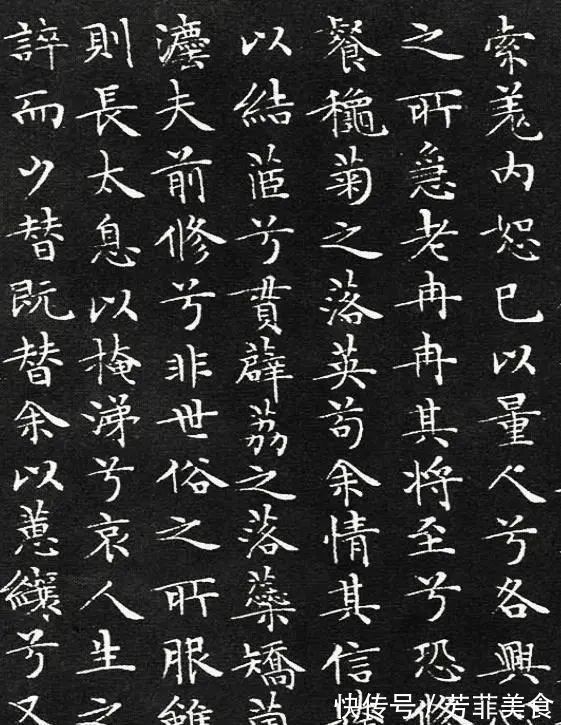 索羗内恕己以量人兮各興
之所急老冉冉其將至兮恐修
餐穐菊之落英苟余情其信
以結茝兮貫薜荔之落蘂矯菌
灋夫前修兮非世俗之所服雖
則長太息以掩涕兮哀人生之
誶而夕替既替余以蕙纕兮又
快传号/芳菲美食